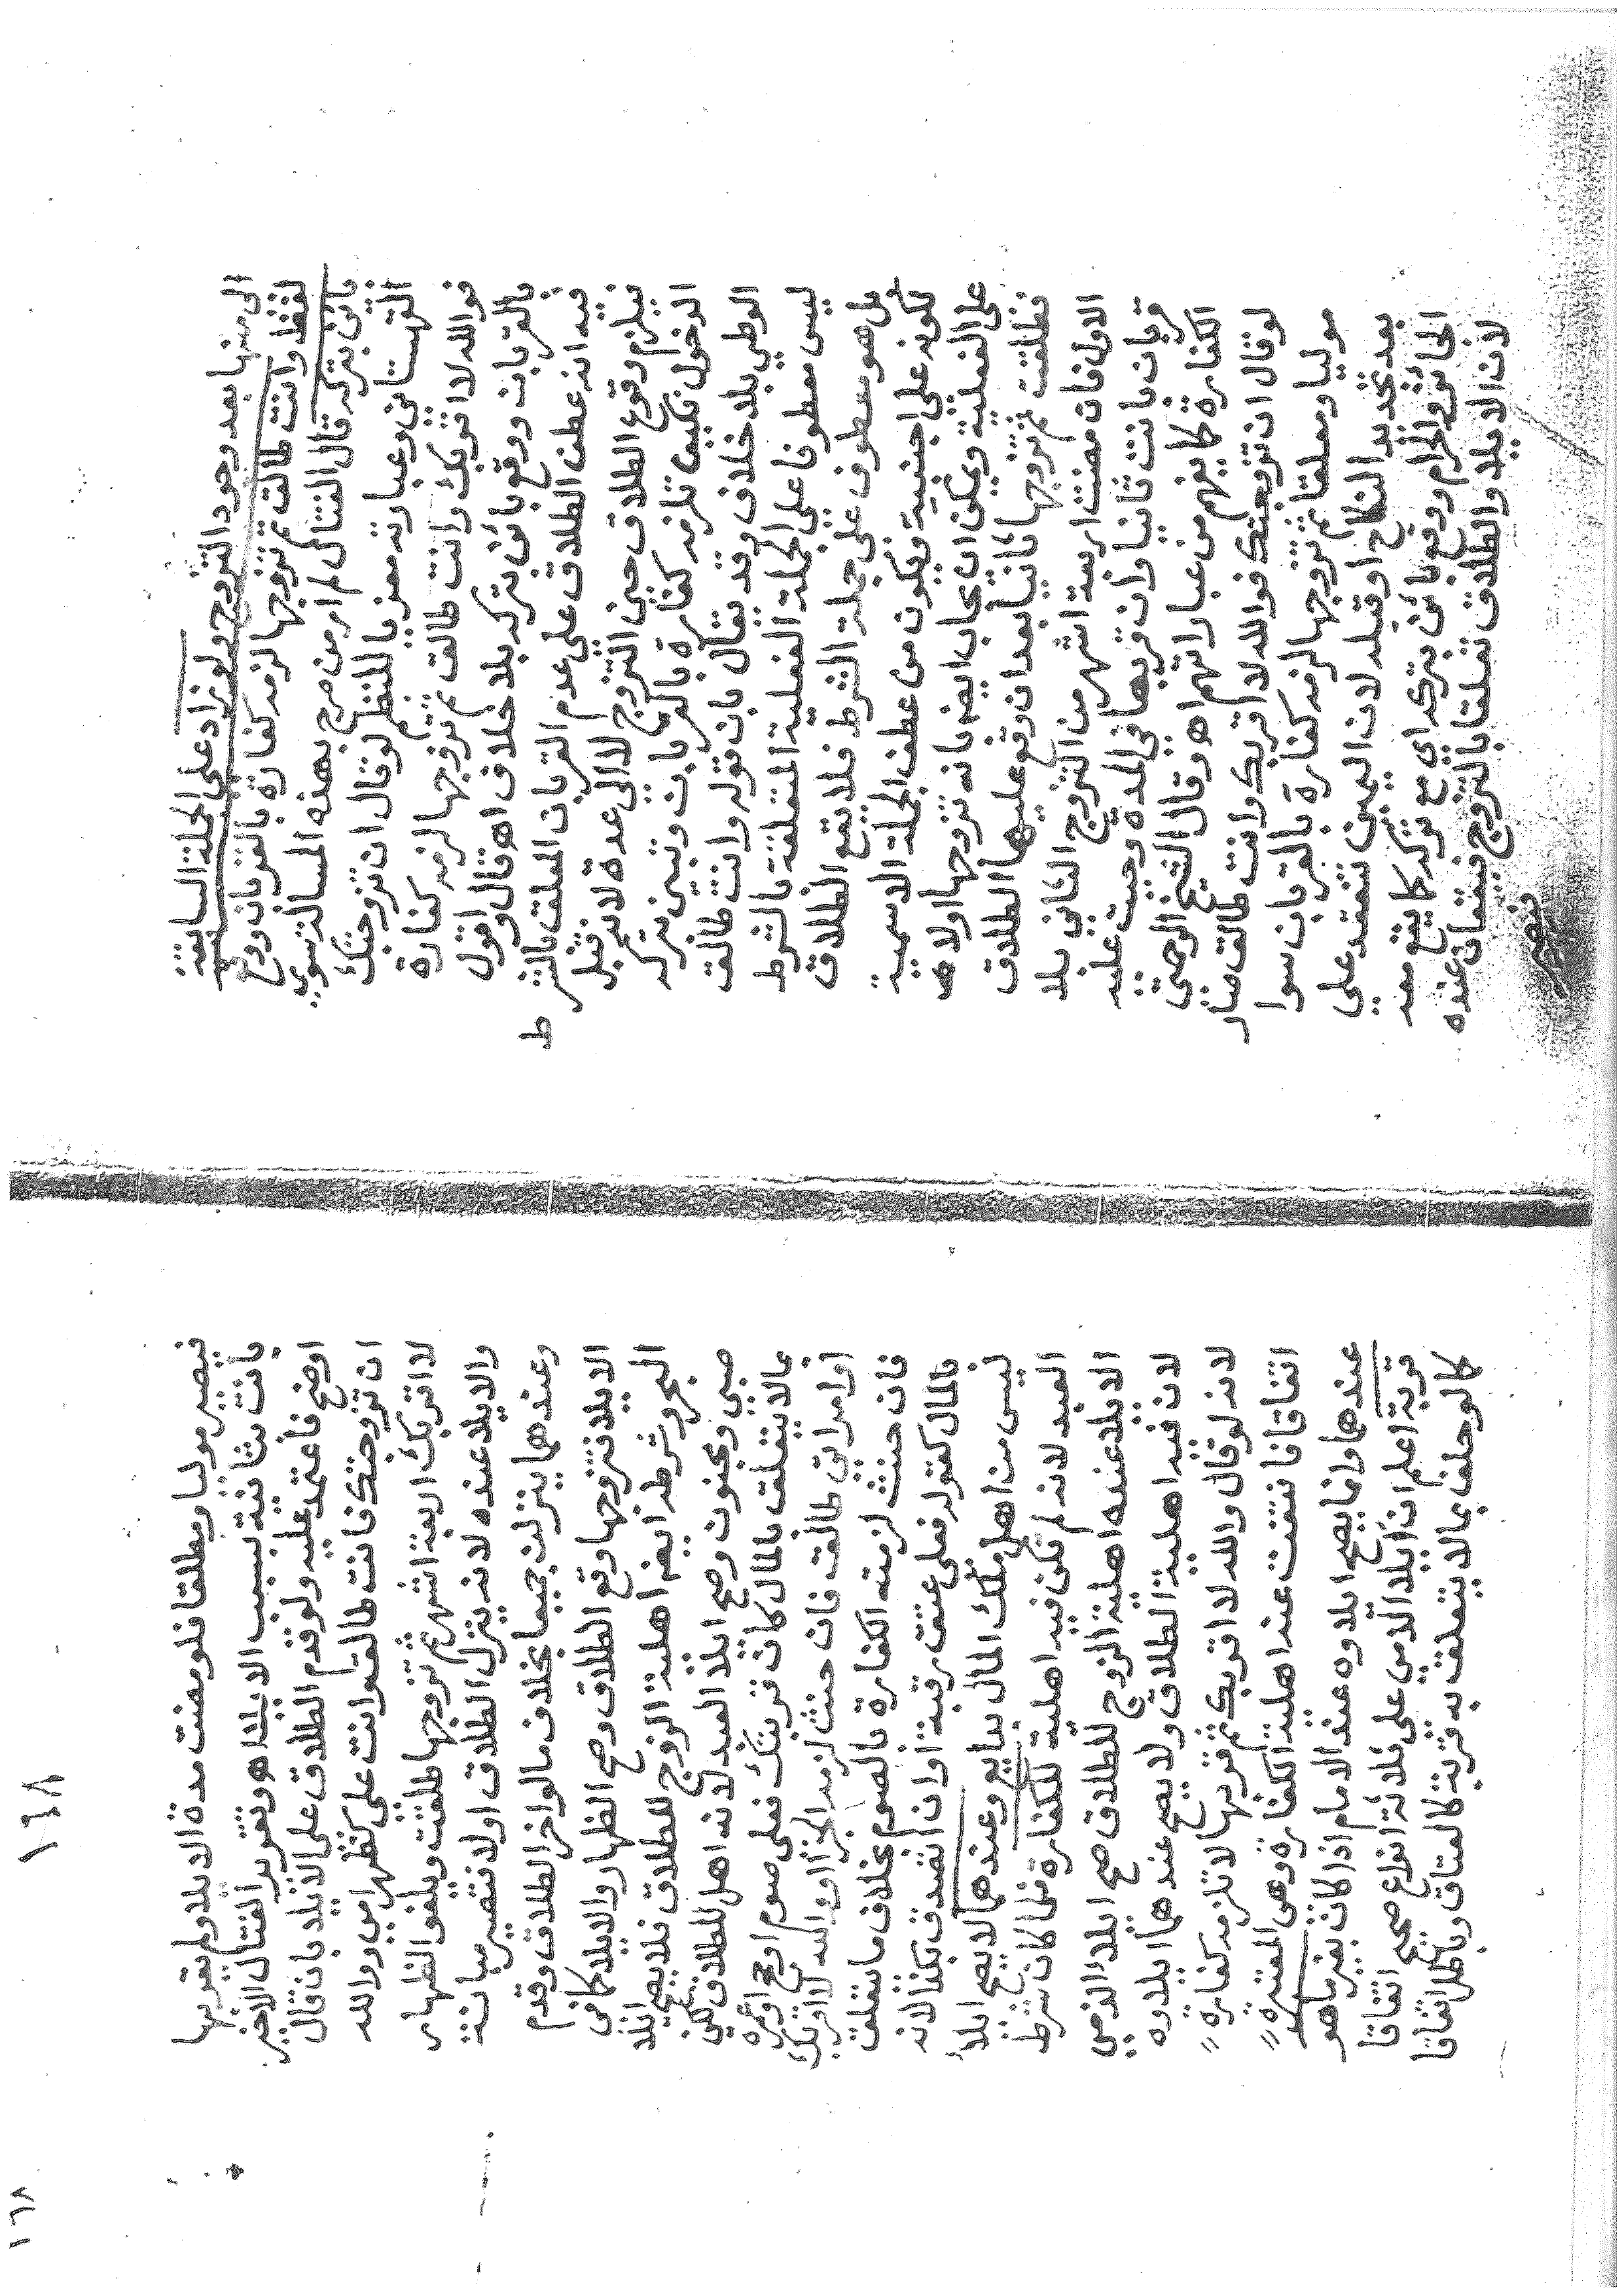 الى منها بعد وجود التزوج ولو زاد على الجملة السابقة
لفظ وانت طالق ثم تزوجها لزمه كفارة بالقربان ووقع
بائن بتركه قال الفتال لم ار من صرح بهذه المسالة سوى
القهستاني وعبارته معزيا للنظم لو قال ان تزوجتك
فوالله لا اقربك وانت طالق ثم تزوجها لزمه كفارة
بالقربان ووقع بائن بتركه بلا خلاف اهـ قال اقول
فيه انه عطف الطلاق على عدم القربان المعلق بالشرط
فيلزم وقوع الطلاق حين التزوج لا الى عدة لانه قبل
الدخول فكيف تلزمه كفارة بالقربان وتبين بتركه
الوطي بلا خلاف وقد يقال بان قوله وانت طالق
ليس معطوفا على الجملة الفعلية المتعلقة بالشرط
بل هو معطوف على جملة الشرط فلا يقع الطلاق
لكونه على اجنبية ويكون من عطف الجملة الاسمية
على الفعلية ويمكن ان يجاب ايضا بانه تزوجها اولا
فطلقت ثم تزوجها ثانيا بعد ان وقع عليها الطلاق
الاول فان مضت اربعة اشهر من التزوج الثاني بلا
قربان بانت ثانيا وان قربها في المدة وجبت عليه
الكفارة كما يفهم من عباراتهم اهـ وقال الشيخ الرحمتي
لو قال ان تزوجتك فوالله لا اقربك وانت طالق صار
موليا ومعلقا ثم تزوجها لزمه كفارة بالقربان سوا
بعد تجديد النكاح او قبله لان اليمين تنعقد على
الجائز والحرام ووقع بائن بتركه اي مع تركه كما يقع معه
لان الايلاء والطلاق تعلقا بالتزوج فيقعان عنده
فتصير
١٤٨
فتصير موليا ومطلقا فلو مضت مدة الايلاء ولم يقربها
بانت ثانية بسبب الايلاء اهـ وتقرير الفتال الاخير
اوضح فاعتمد عليه ولو قدم الطلاق على الايلاء بان قال
ان تزوجتك فانت طالق وانت علي كظهر امي ووالله
لا اقربك اربعة اشهر ثم تزوجها طلقت ويلغو الظهار
والايلاء عنده لانه ينزل الطلاق اولا فتصير مبانة
وعندهما ينزلن جميعا بخلاف ما لو اخر الطلاق وقدم
الايلاء فتزوجها وقع الطلاق وصح الظهار والايلاء كما في
البحر وشرطه ايضا اهلية الزوج للطلاق فلا يصح ايلاء
صبي ومجنون وصح ايلاء العبد لانه اهل للطلاق لكن
بما لا يتعلق بالمال كان قربتك فعلي صوم او حج او عمرة
او امراتي طالق فان حنث لزمه الجزاء او والله لا اقربك
فان حنث لزمته الكفارة بالصوم بخلاف ما يتعلق
بالمال كقوله فعلي عتق رقبة او ان اتصدق بكذا لانه
ليس من اهل ملك المال بدايع وعندهما لا يصح ايلاء
العبد لانه لم تكن فيه اهلية للكفارة فلما كان شرط
الايلاء عنده اهلية الزوج للطلاق صح ايلاء الذمي
لان فيه اهلية الطلاق ولا يصح عندهما ايلاوه
لانه لو قال والله لا اقربك ثم قربها لا تلزمه كفارة
اتفاقا فانتفت عند اهلية الكفارة وهي المعتبرة
عندهما وانما يصح ايلاوه عند الامام اذا كان بغير ما هو
قربة اعلم ان ايلاء الذمي على ثلاثة انواع صحيح اتفاقا
كما لو حلف بما لا يتعلق به قربة كالعتاق وباطل اتفاقا
١٦٨